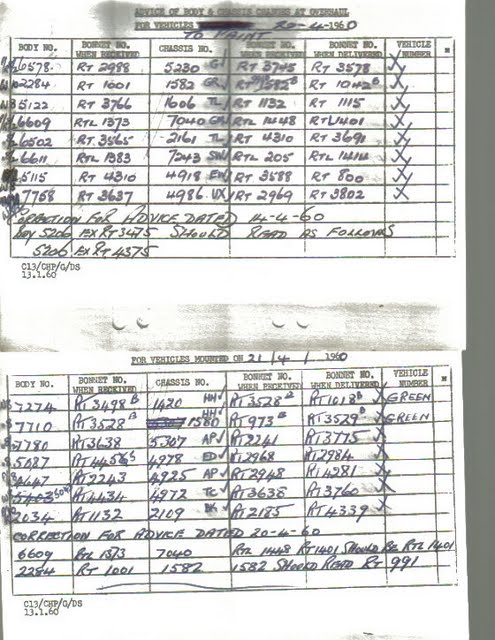 ADVICE OF BODY & CHASSIS CHANGES AT OVERHAUL
FOR VEHICLES 20-4-1960
TO PAINT
BODY NO. BONNET NO. WHEN RECEIVED CHASSIS NO. BONNET NO. WHEN RECEIVED BONNET NO. WHEN DELIVERED VEHICLE NUMBER
6578 RT 2988 5230 RT 3745 RT 3578
2284 RT 1001 1582 GR RT 1042 B
5122 RT 3766 1606 TL RT 1132 RT 1115
6609 RTL 1373 7040 RTL 1448 RTL 1401
6502 RT 3565 2161 TL RT 4310 RT 3691
6611 RTL 1383 7243 SW RTL 205 RTL 1414
5115 RT 4310 4918 RT 3588 RT 800
7758 RT 3637 4986 UX RT 2969 RT 3802
CORRECTION FOR ADVICE DATED 14-4-60
Boy 5206 EX RT 3475 SHOULD READ AS FOLLOWS
5206 EX RT 4375
C13/CHP/G/DS
13.1.60
FOR VEHICLES MOUNTED ON 21/4/1960
BODY NO. BONNET NO. WHEN RECEIVED CHASSIS NO. BONNET NO. WHEN RECEIVED BONNET NO. WHEN DELIVERED VEHICLE NUMBER
7274 RT 3498 B 1420 HH RT 3528 RT 1018 B GREEN
7710 RT 3528 B 1580 HH RT 973 B RT 3529 B GREEN
7780 RT 3638 5307 AP RT 2241 RT 3775
5087 4978 ED RT 2968 RT 2984
6647 RT 2243 4925 AP RT 2948 RT 4281
RT 4434 4972 TC RT 3638 RT 3760
2034 RT 1132 2109 RT 2185 RT 4339
CORRECTION FOR ADVICE DATED 20-4-60
6609 RTL 1373 7040 RTL 1448 RT 1401 SHOULD BE RTL 1401
2284 RT 1001 1582 1582 SHOULD READ RT 991
C13/CHP/G/DS
13.1.60